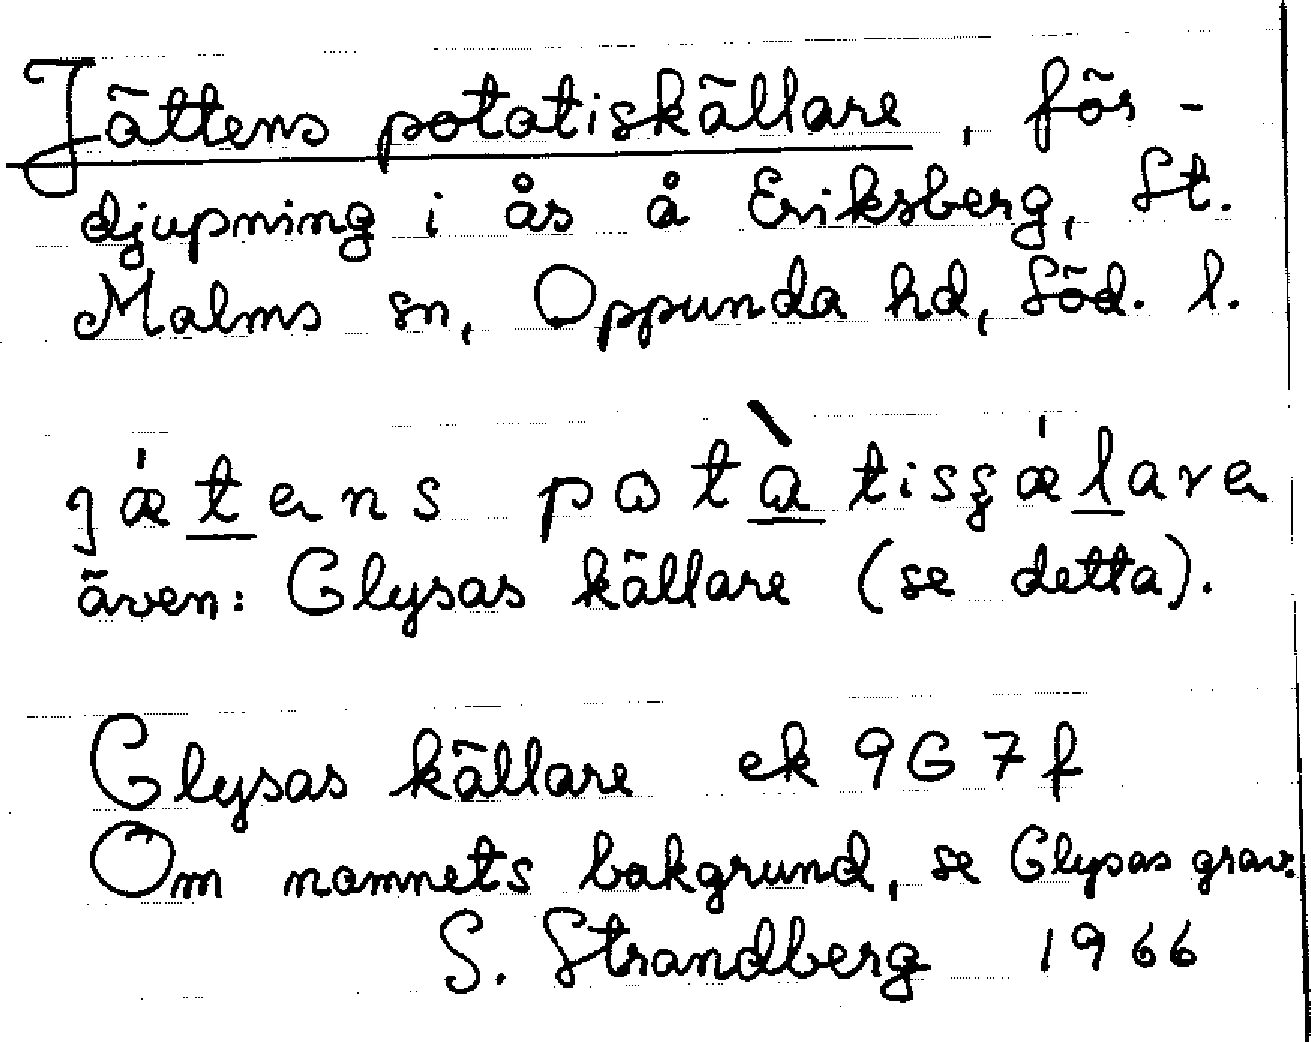 Jättens potatiskällare, för-
djupning i ås å Eriksberg, St.
Malms sn, Oppunda hd, Söd. l.
även: Glysas källare (se detta).
Glysas källare ek 9G 7f
Om namnets bakgrund, se Glysas grav.
S. Strandberg 1966